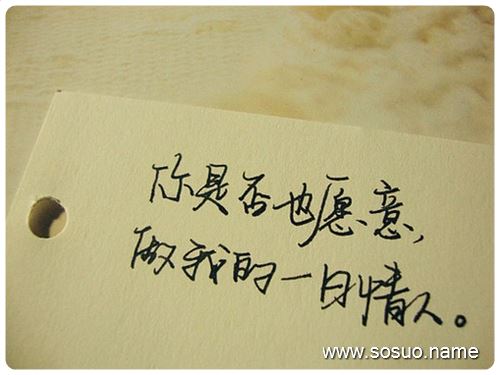 你是否也愿意,
做我的一日情人。
www.sosuo.name